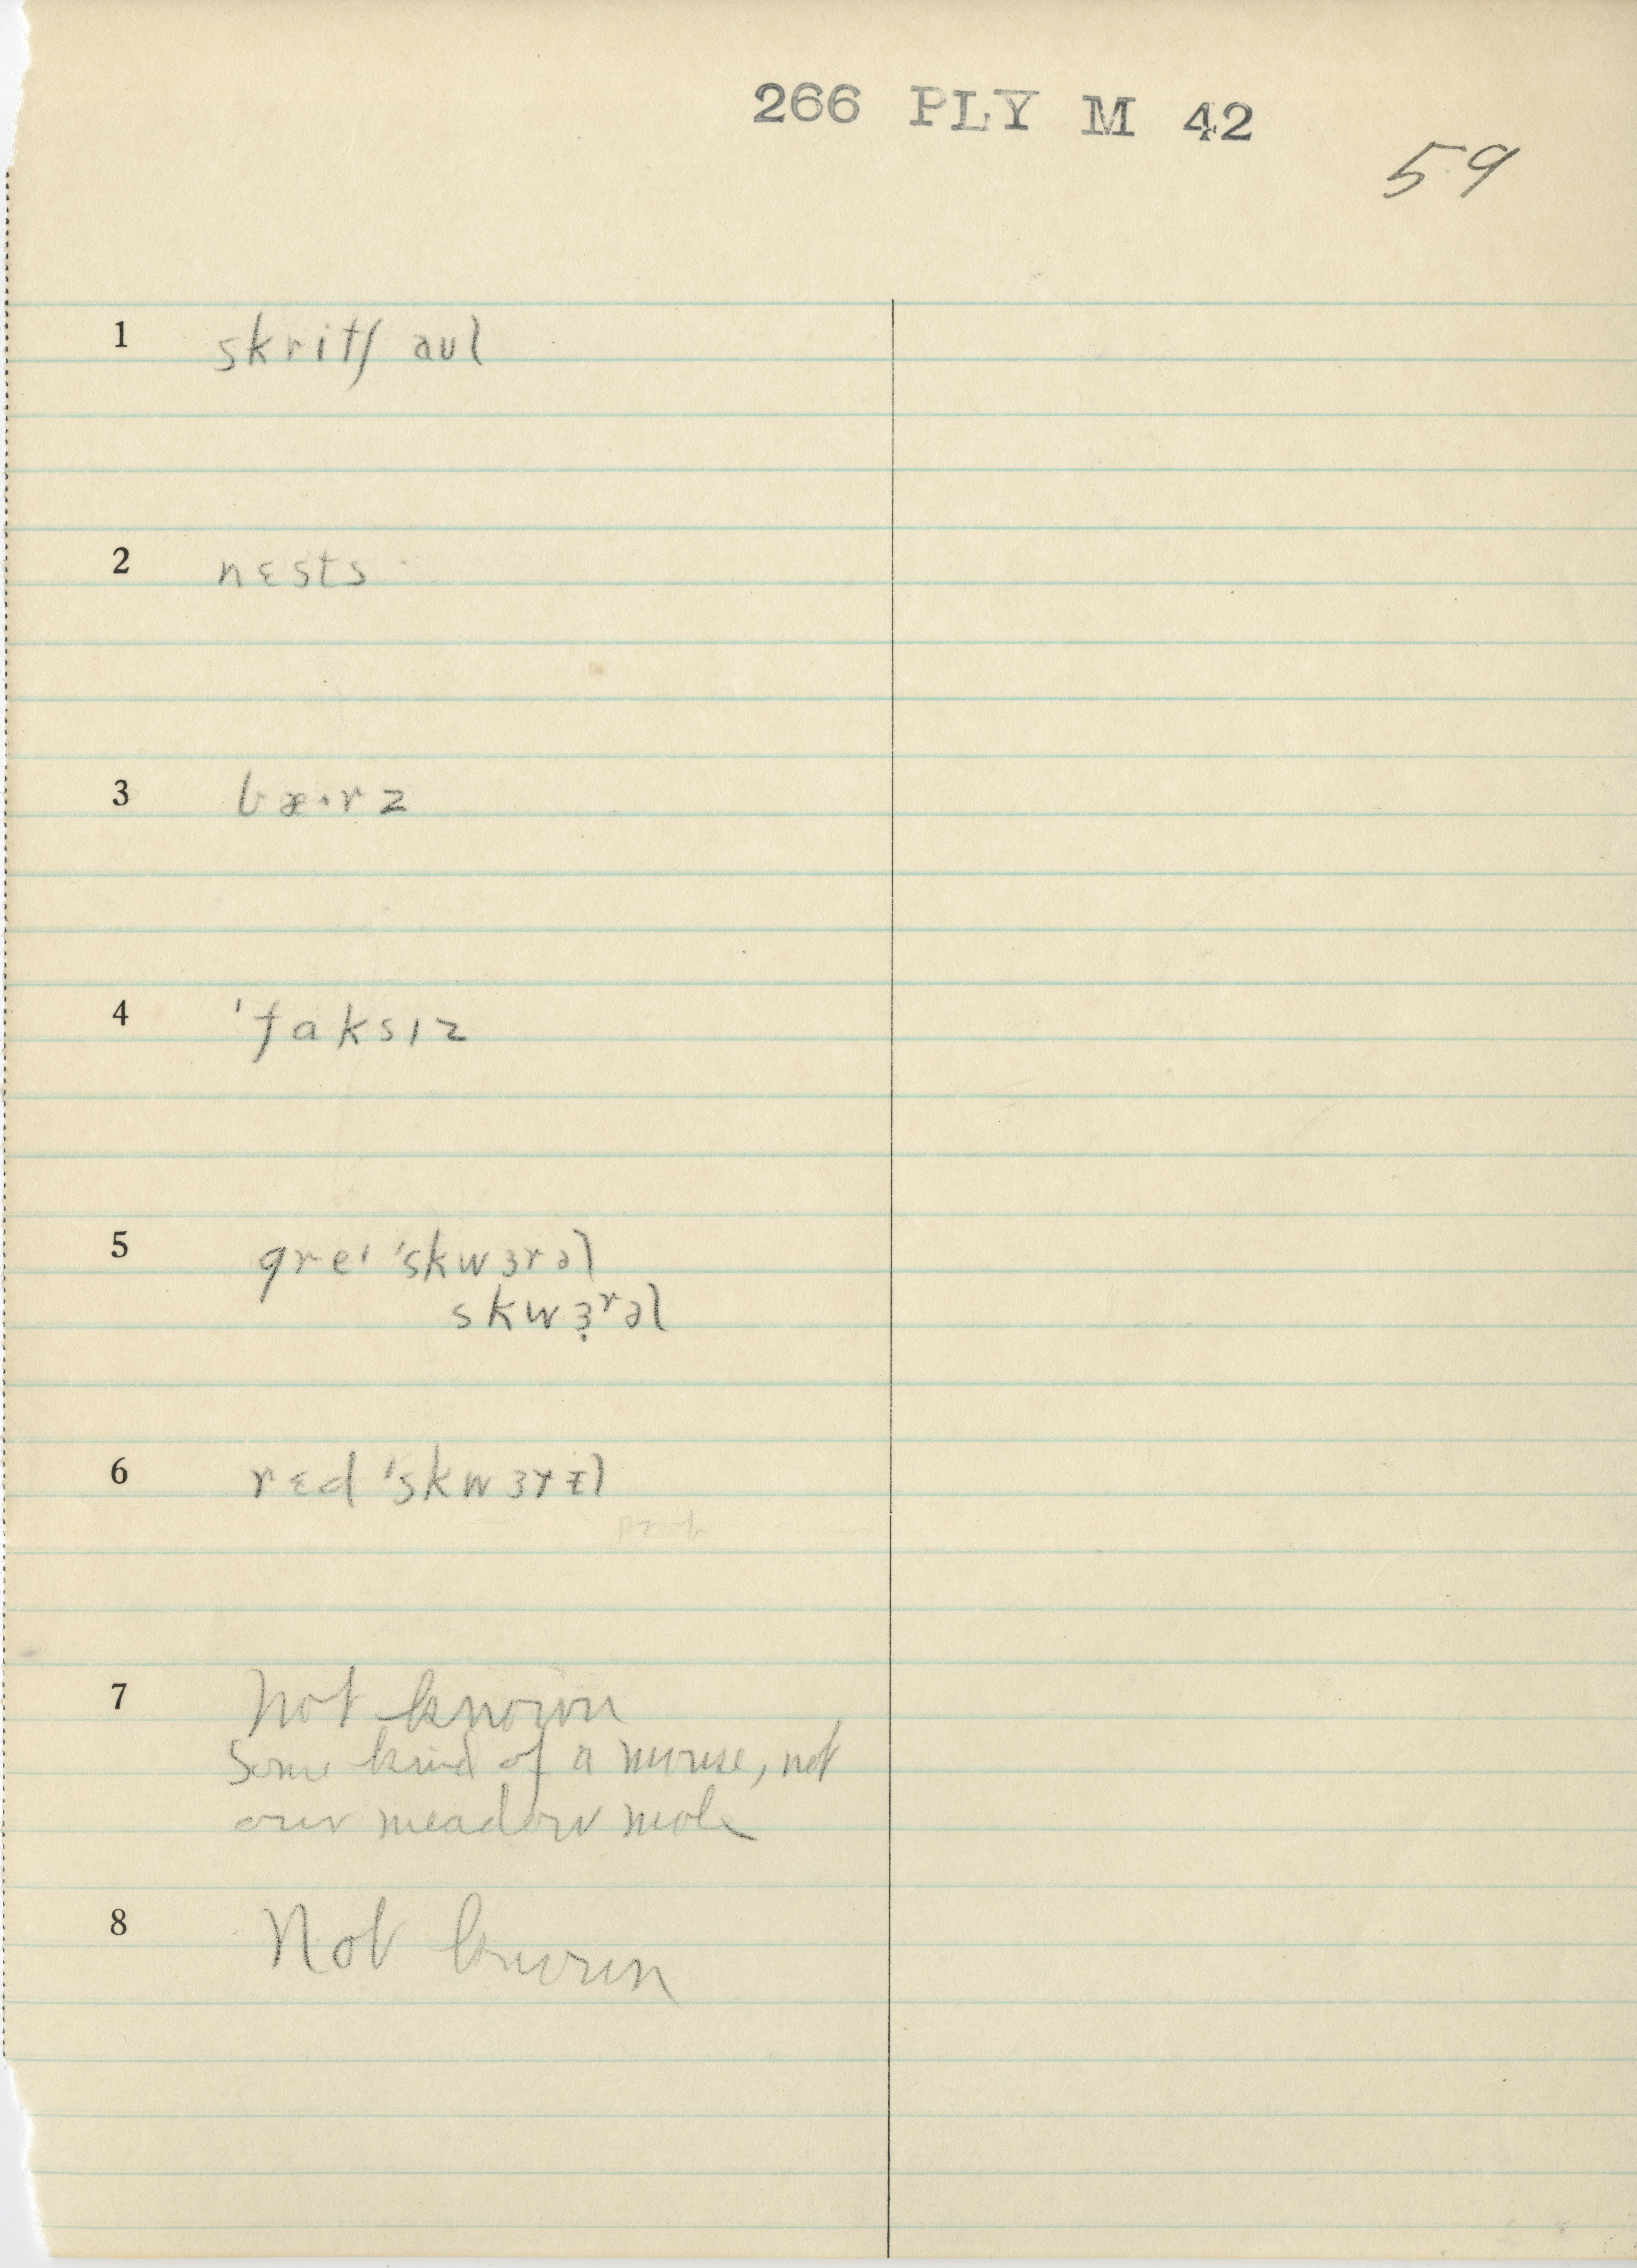 266 PLY M 42
59
1 skritʃ aʊl
2 nɛsts
3 bæ·rz
4 'faksɪz
5 greɪ 'skwɜrəl
skwɜ̣ʳəl
6 rɛd 'skwɜrᵻl
7 Not known
Some kind of a mouse, not
our meadow mole
8 Not known